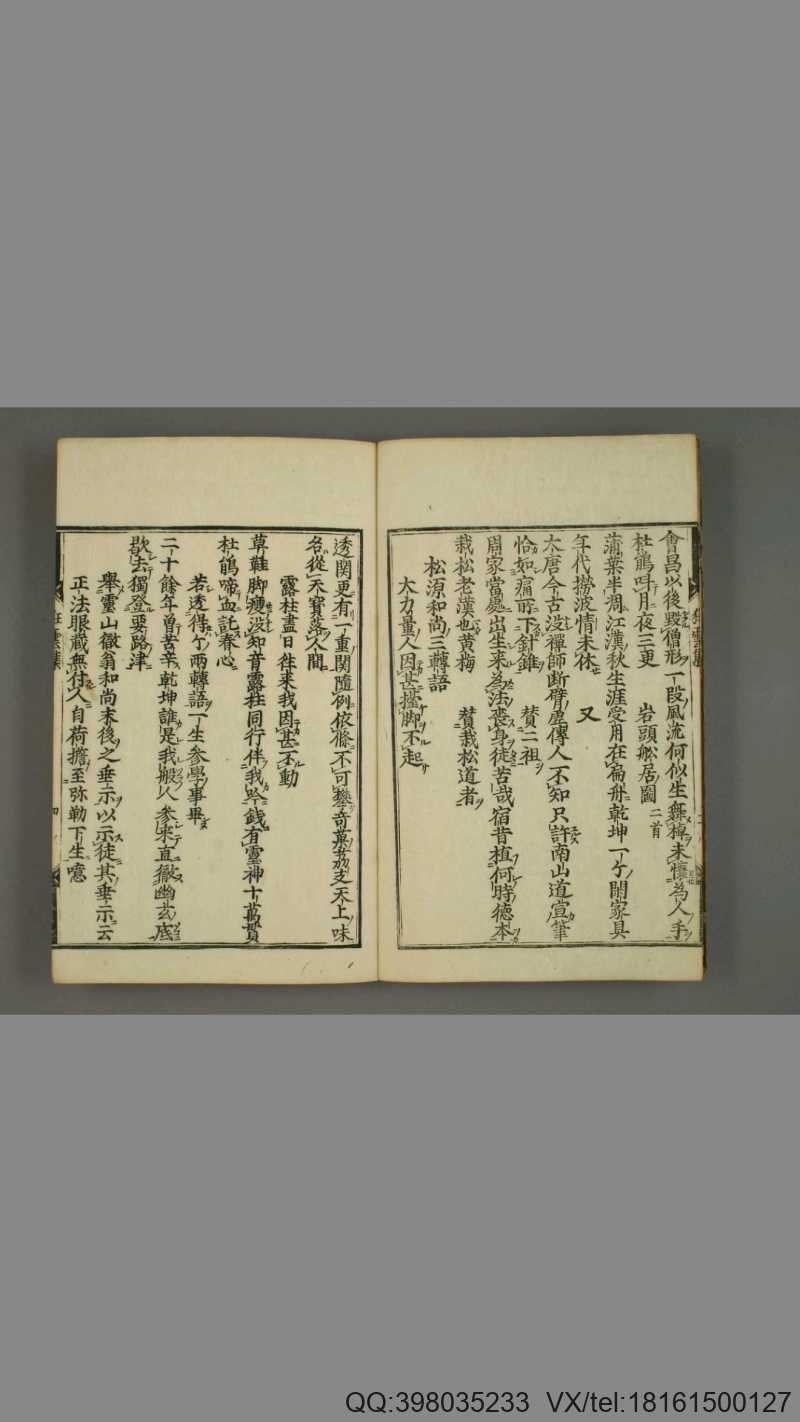 會昌以後毀僧形一段風流何似生舞棹未懷為人手
杜鵑叫月夜三更　岩頭舩居圖二首
蒲葉半凋江漢秋生涯受用在扁舟乾坤一ケ閑家具
年代撈波情未休　又
大唐今古没禪師断臂虚傳人不知只許南山道宣筆
恰如痛所下針錐　賛二祖
周家當處出生来為法喪身徒苦哉宿昔植何時德本
栽松老漢也黄梅　賛栽松道者
松源和尚三轉語
大力量人因甚擡脚不起
透関更有一重関隨例依條不可攀奇菓茘支天上味
名從天寶落人間
露柱盡日往来我因甚不動
草鞋脚痩没知音露柱同行伴我吟錢有靈神十萬貫
杜鵑啼血託春心
若透得ケ兩轉語一生参學事畢
二十餘年曽苦辛乾坤誰是我般人参来直徹幽玄底
歇去獨登要路津
舉靈山徹翁和尚末後之垂示以示徒其垂示云
正法眼藏無付人自荷擔至弥勒下生噫
狂雲集
QQ:398035233 VX/tel:18161500127